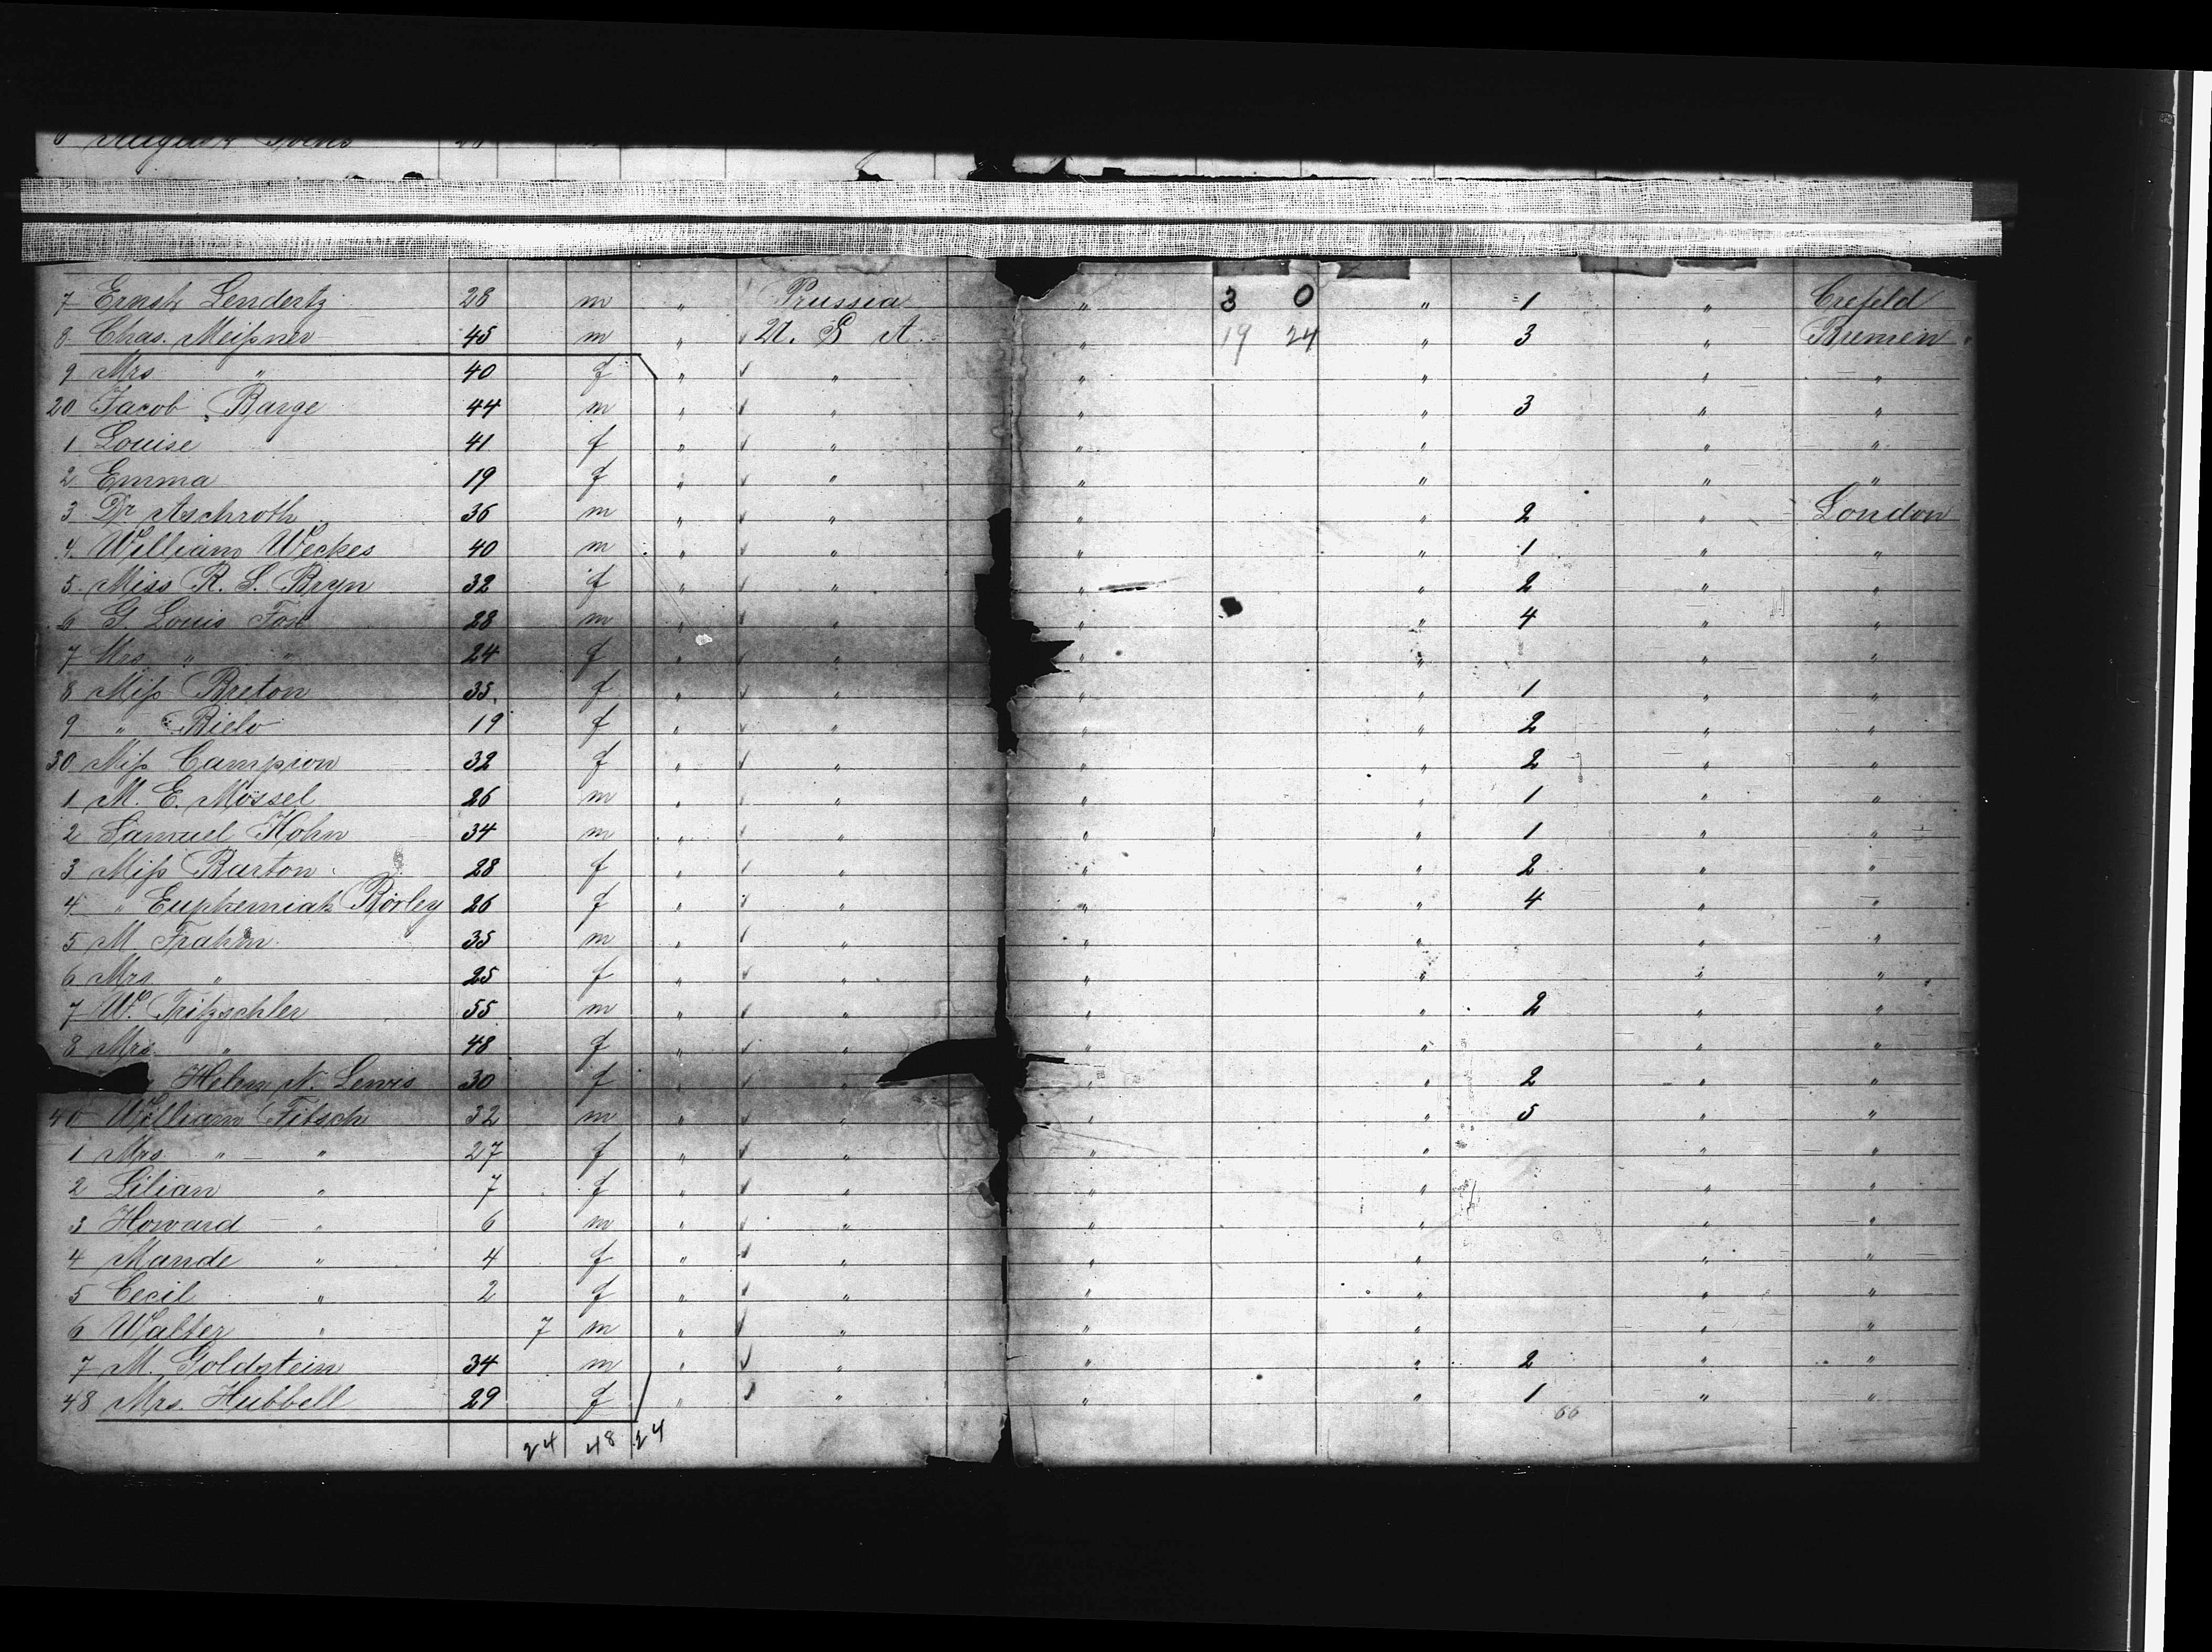 7 Ernst Lendertz 28 m " Prussia " 3 0 " 1 " Crefeld
8 Chas. Meißner 45 m " U. S. A. " 19 24 " 3 " Bremen
9 Mrs " 40 f " " " " " "
20 Jacob Barge 44 m " " " " 3 " "
1 Louise 41 f " " " " " "
2 Emma 19 f " " " " " "
3 Dr Aschroth 36 m " " " " 2 " London
4 William Weckes 40 m " " " " 1 " "
5 Miss R. S. Bryn 32 f " " " " 2 " "
6 G. Louis Fox 28 m " " " " 4 " "
7 Mrs " " 24 f " " " " " "
8 Miß Breton 35 f " " " " 1 " "
9 " Bielo 19 f " " " " 2 " "
30 Miß Campion 32 f " " " " 2 " "
1 M. E. Mössel 26 m " " " " 1 " "
2 Samuel Hohn 34 m " " " " 1 " "
3 Miß Barton 28 f " " " " 2 " "
4 " Euphemiah Rorley 26 f " " " " 4 " "
5 M. Frahm 35 m " " " " " "
6 Mrs " 25 f " " " " " "
7 W. Fritzschler 55 m " " " " 2 " "
8 Mrs " 48 f " " " " " "
Helen N. Lewis 30 f " " " " 2 " "
40 William Fitsch 32 m " " " " 5 " "
1 Mrs " " 27 f " " " " " "
2 Lilian " 7 f " " " " " "
3 Howard " 6 m " " " " " "
4 Maude " 4 f " " " " " "
5 Cecil " 2 f " " " " " "
6 Walter " 7 m " " " " " "
7 M. Goldstein 34 m " " " " 2 " "
48 Mrs. Hubbell 29 f " " " " 1 " "
24 48 24 66